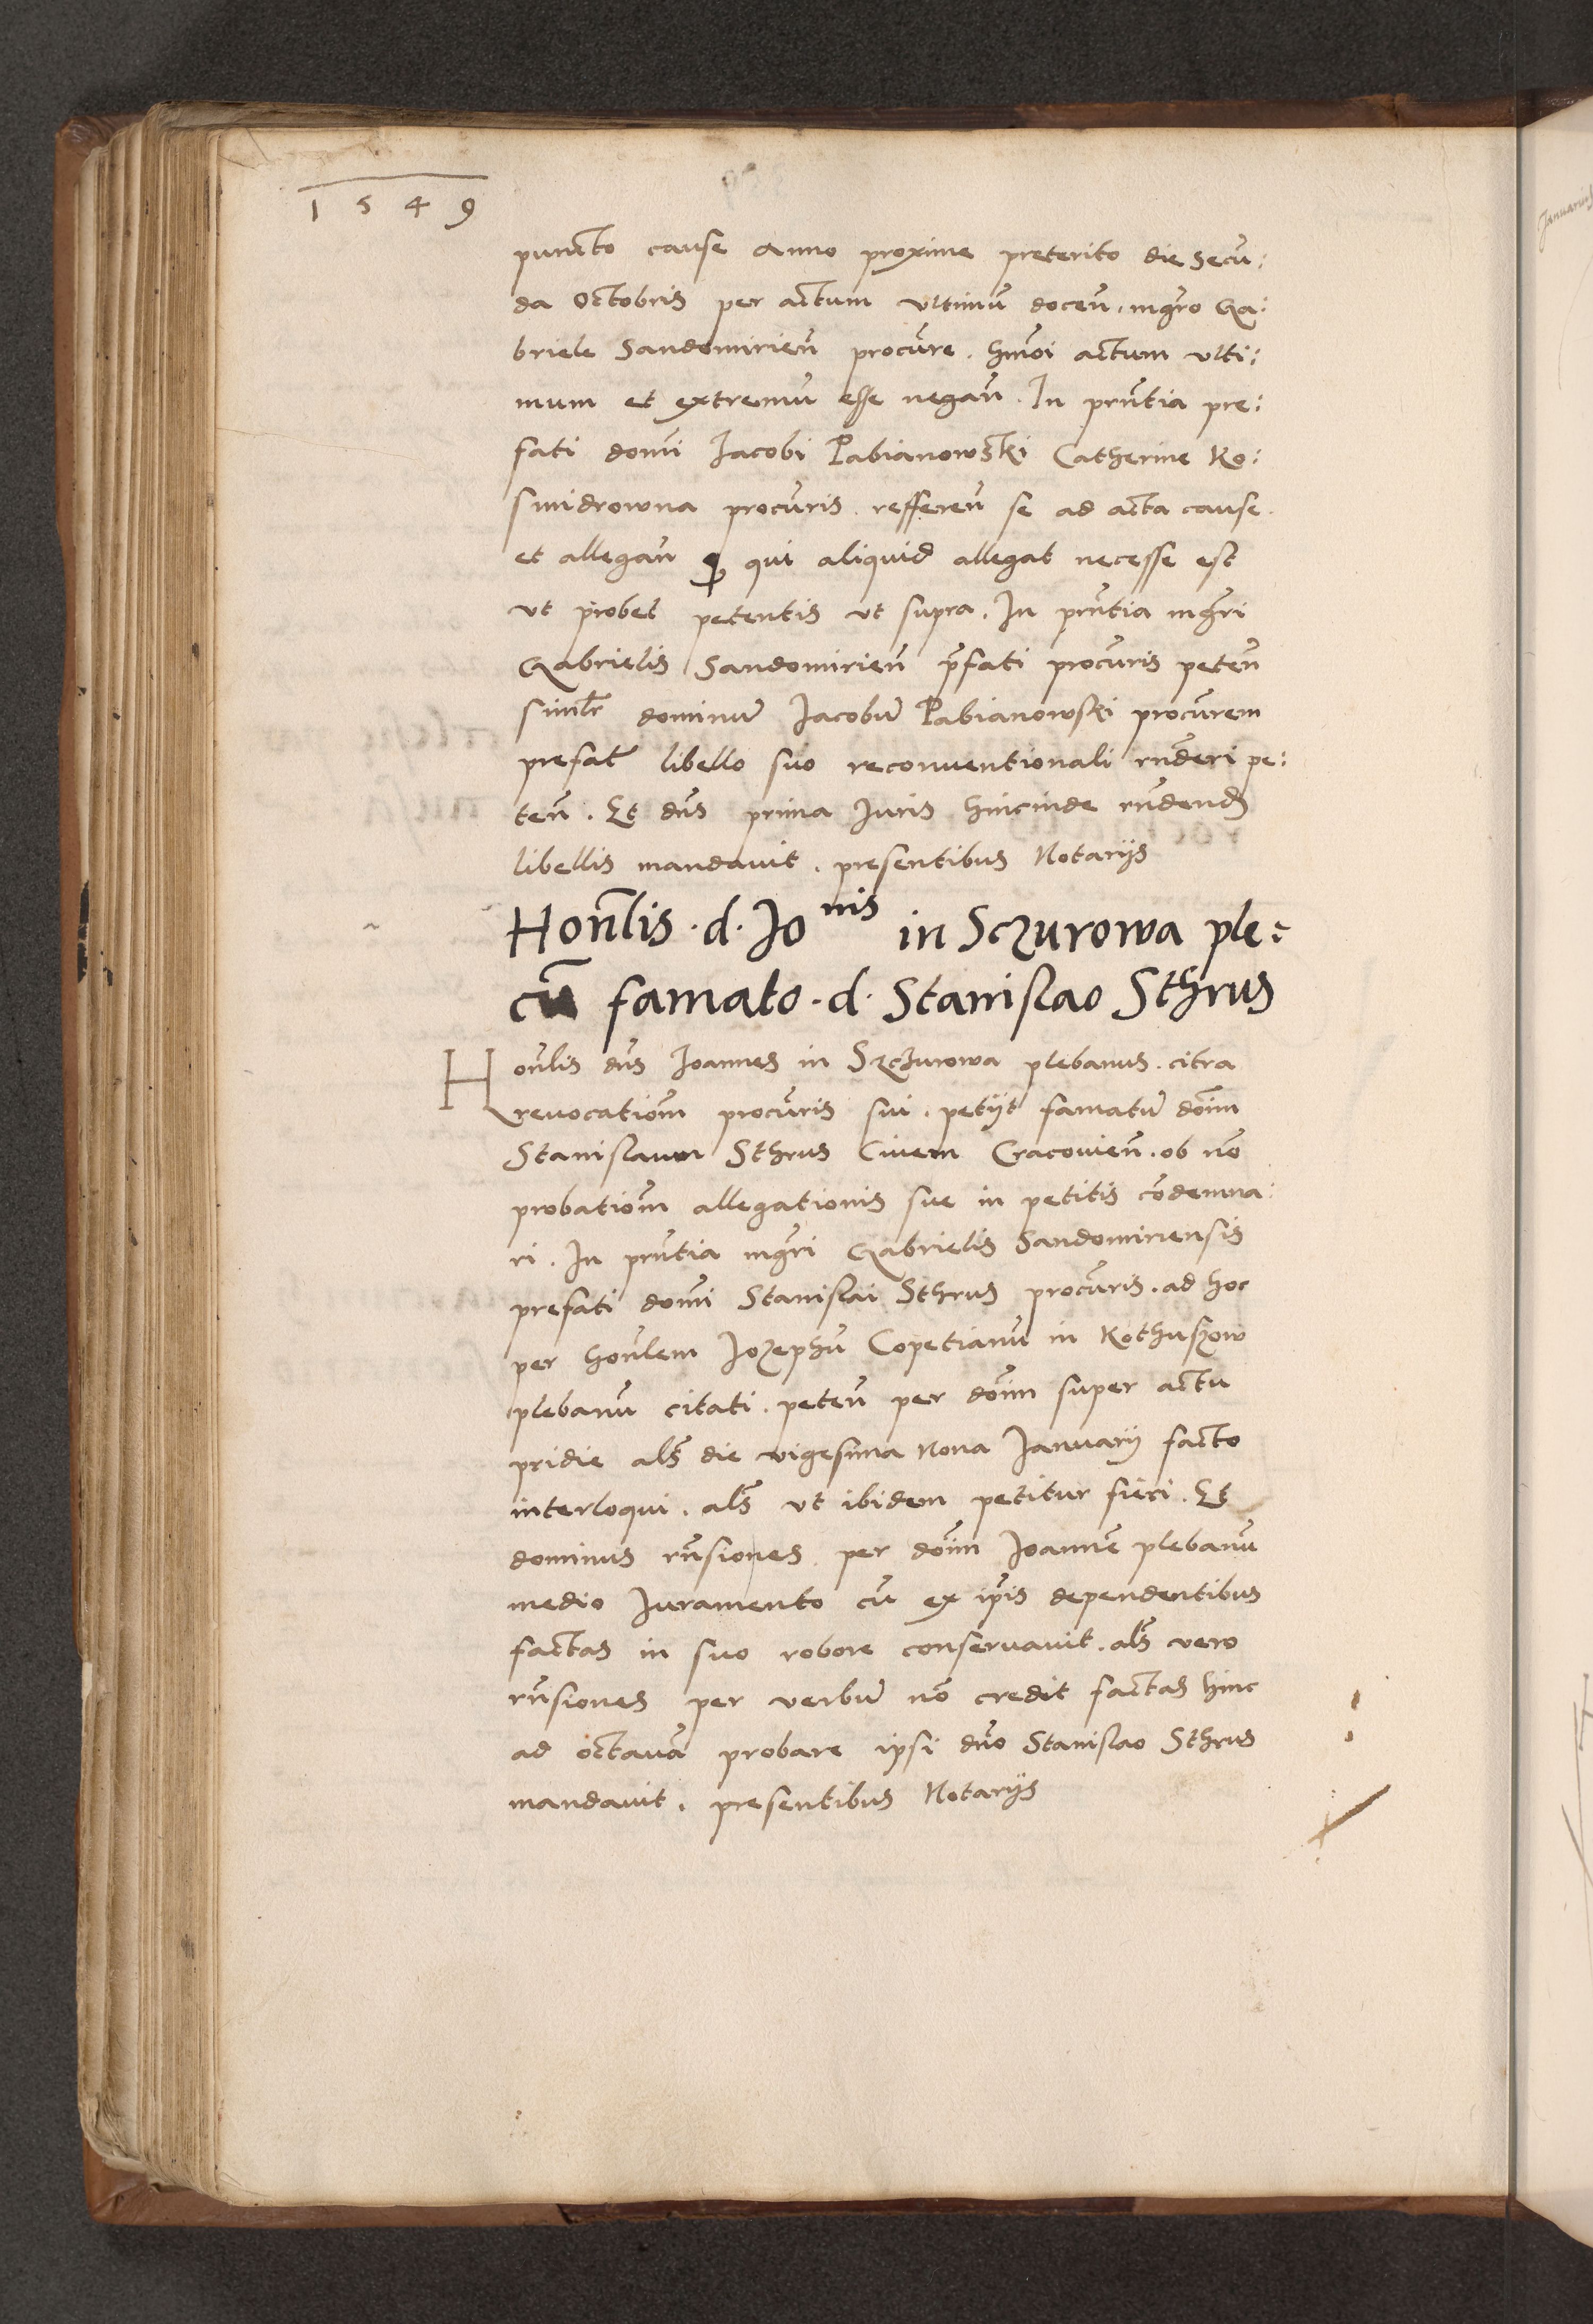 1549
puncto cause Anno proxime preterito die Secū:
da Octobris per actum vltimū doceñ. mgro Ga:
briele Sandomirieñ procure. hmōi actum vlti:
mum et extremū esse negañ. In prñtia pre:
fati domi Iacobi Pabianowski Catherine Ko:
smidrowna procuris. refferen̄ se ad acta cause.
et allegan̄ ꝙ qui aliquid allegat necesse est
vt probet petentis vt supra. In prñtia mgri
Gabrielis Sandomirien̄ p̄fati procuris peten̄
simlr dominū Iacobū Pabianowski procurem
prefat̄ libello suo reconuentionali rn̄deri pe:
ten̄. Et dn̄s prima Iuris hincinde rn̄dend
libellis mandauit. presentibus Notarijs
Hon̄lis. d. Io nis in Sczurowa ple:
cū famato. d. Stanislao Sthrus
Hon̄lis dn̄s Ioannes in Szczurowa plebanus. citra
reuocatiom̄ procuris sui. petijt famatū dōim
Stanislaum Sthrus Ciuem Cracouien̄. ob nō
probatiom̄ allegationis sue in petitis cōdemna:
ri. In prn̄tia mgri Gabrielis Sandomiriensis
prefati domi Stanislai Sthrus procuris. ad hoc
per hon̄lem Iozephū Copetianū in Kothuszow
plebanū citati. peten̄ per dōim super actu
pridie als̄ die vigesima Nona Ianuarij facto
interloqui. als̄ vt ibidem petitur fieri. Et
dominus rn̄siones per dōim Ioannē plebanū
medio Iuramento cū ex ip̄is dependentibus
factas in suo robore conseruauit. als̄ vero
rn̄siones per verbū nō credit factas hinc
ad octauā probare ipsi dn̄o Stanislao Sthrus
mandauit. presentibus Notarijs